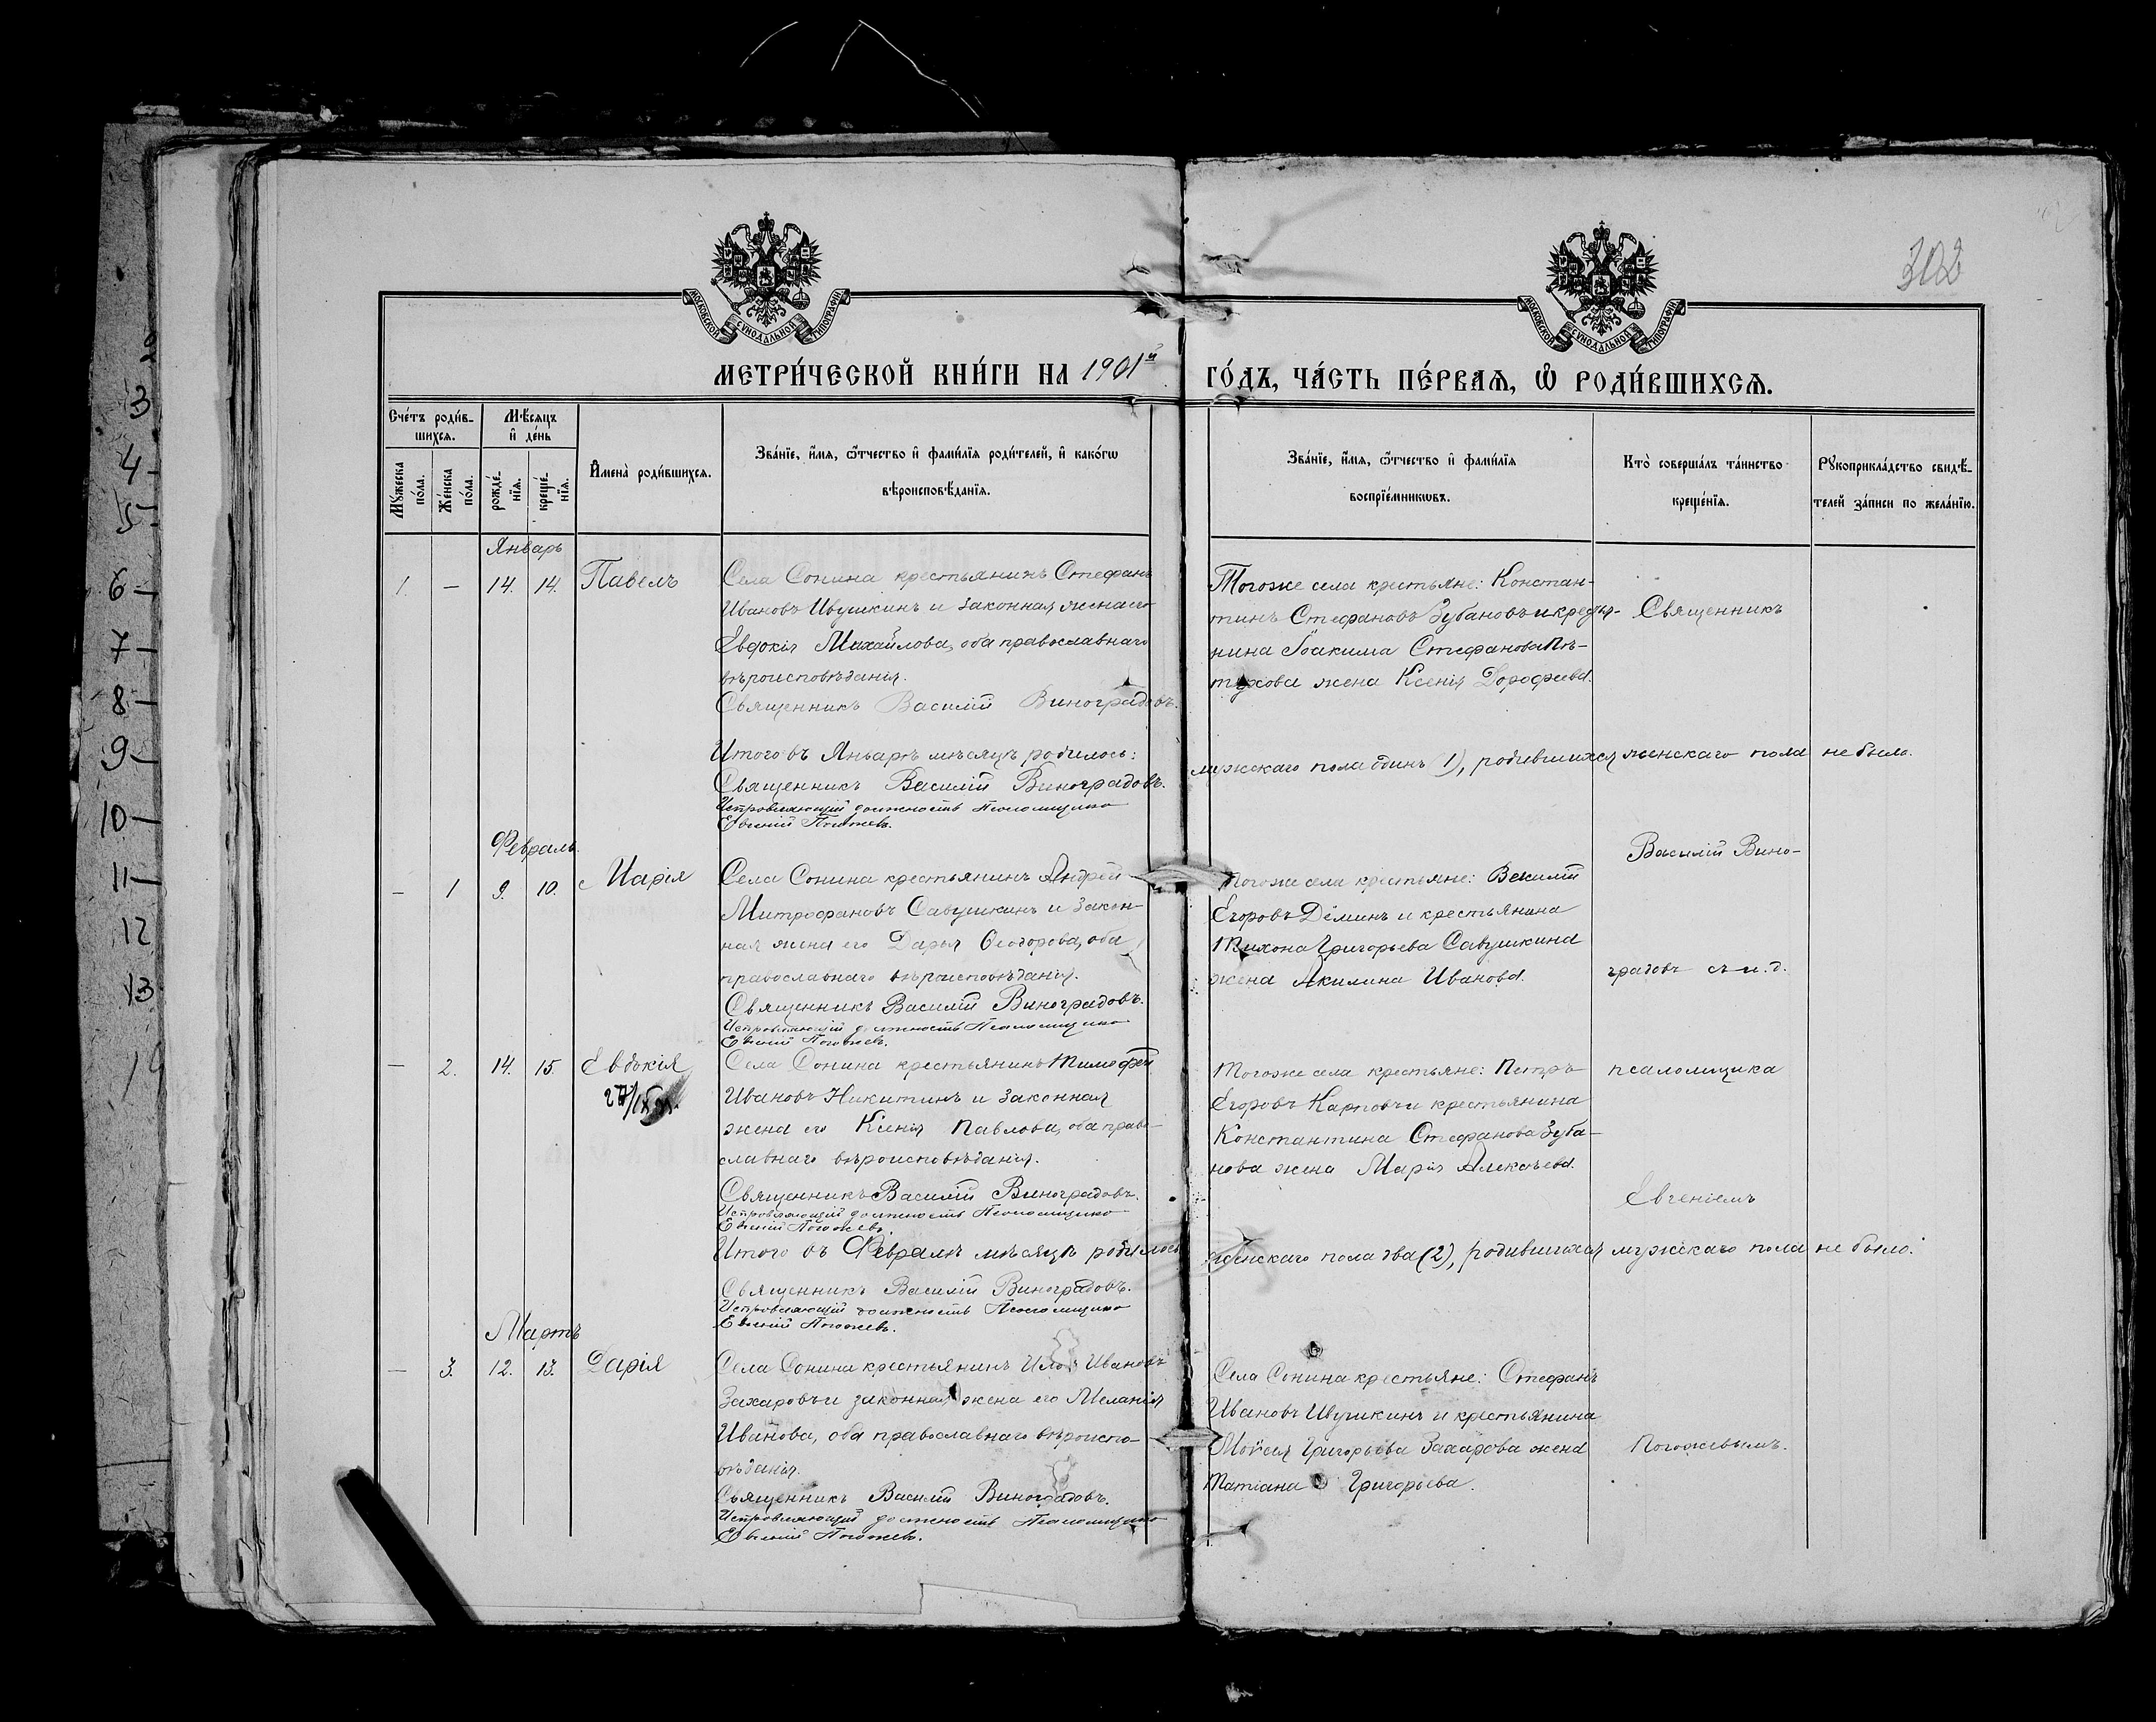 302
МОСКОВСКОЙ СѴНОДАЛЬНОЙ ТИПОГРАФІИ
МОСКОВСКОЙ СѴНОДАЛЬНОЙ ТИПОГРАФІИ
МЕТРИ́ЧЕСКОЙ КНИ́ГИ НА 1901й
ГО́ДЪ, ЧА́СТЬ ПЕ́РВАѦ, Ѡ҆ РОДИ́ВШИХСѦ.
Сче́тъ роди́в-
шихсѧ.
Мѣ́сѧцъ
и҆ де́нь
Мꙋ́жеска
по́ла.
Же́нска
по́ла.
рожде́-
нїѧ.
креще́-
нїѧ.
И҆мена̀ роди́вшихсѧ.
Зва́нїе, и҆́мѧ, ѻ҆́тчество и҆ фами́лїѧ роди́телей, и҆ како́гѡ
вѣроисповѣ́данїѧ.
Зва́нїе, и҆́мѧ, ѻ҆́тчество и҆ фами́лїѧ
воспрїе́мникѡвъ.
Кто̀ соверша́лъ та́инство
креще́нїѧ.
Рꙋкоприкла́дство свидѣ́-
телей за́писи по жела́нїю.
Январь
1. — 14. 14. Павелъ
Села Сонина крестьянинъ Стефанъ
Ивановъ Ивушкинъ и законная жена его
Евдокія Михайлова, оба православнаго
вѣроисповѣданія.
Священникъ Василій Виноградовъ.
Тогоже села крестьяне: Констан-
тинъ Стефановъ Зубановъ и крестья-
нина Іоакима Стефанова Пѣ-
тухова жена Ксенія Дорофеева.
Священникъ
Итого въ Январѣ мѣсяцѣ родилось:
мужскаго пола одинъ (1), родившихся женскаго пола не было.
Священникъ Василій Виноградовъ.
Исправляющій должность Псаломщика
Евгеній Погожевъ.
Февраль
— 1 9. 10. Марія
Села Сонина крестьянинъ Андрей
Митрофановъ Савушкинъ и закон-
ная жена его Дарья Ѳеодорова, оба
православнаго вѣроисповѣданія.
Священникъ Василій Виноградовъ.
Исправляющій должность Псаломщика
Евгеній Погожевъ.
Тогоже села крестьяне: Василій
Егоровъ Дёминъ и крестьянина
Тихона Григорьева Савушкина
жена Акилина Иванова.
Василій Вино-
градовъ съ и. д.
— 2. 14. 15. Евдокія
Села Сонина крестьянинъ Тимофей
Ивановъ Никитинъ и законная
жена его Ксенія Павлова, оба право-
славнаго вѣроисповѣданія.
Священникъ Василій Виноградовъ.
Исправляющій должность Псаломщика
Евгеній Погожевъ.
Тогоже села крестьяне: Петръ
Егоровъ Карповъ и крестьянина
Константина Стефанова Зуба-
нова жена Марія Алексѣева.
псаломщика
Евгеніемъ
Итого въ Февралѣ мѣсяцѣ родилось
женскаго пола два (2), родившихся мужскаго пола не было.
Священникъ Василій Виноградовъ.
Исправляющій должность Псаломщика
Евгеній Погожевъ.
Мартъ
— 3. 12. 13. Дарія
Села Сонина крестьянинъ Ивановъ
Захаровъ и законная жена его Меланія
Иванова, оба православнаго вѣроиспо-
вѣданія.
Священникъ Василій Виноградовъ.
Исправляющій должность Псаломщика
Евгеній Погожевъ.
Села Сонина крестьяне: Стефанъ
Ивановъ Ивушкинъ и крестьянина
Моѵсея Григорьева Захарова жена
Татіана Григорьева.
Погожевымъ.
3
4
5
6
7
8
9
10
11
12
13